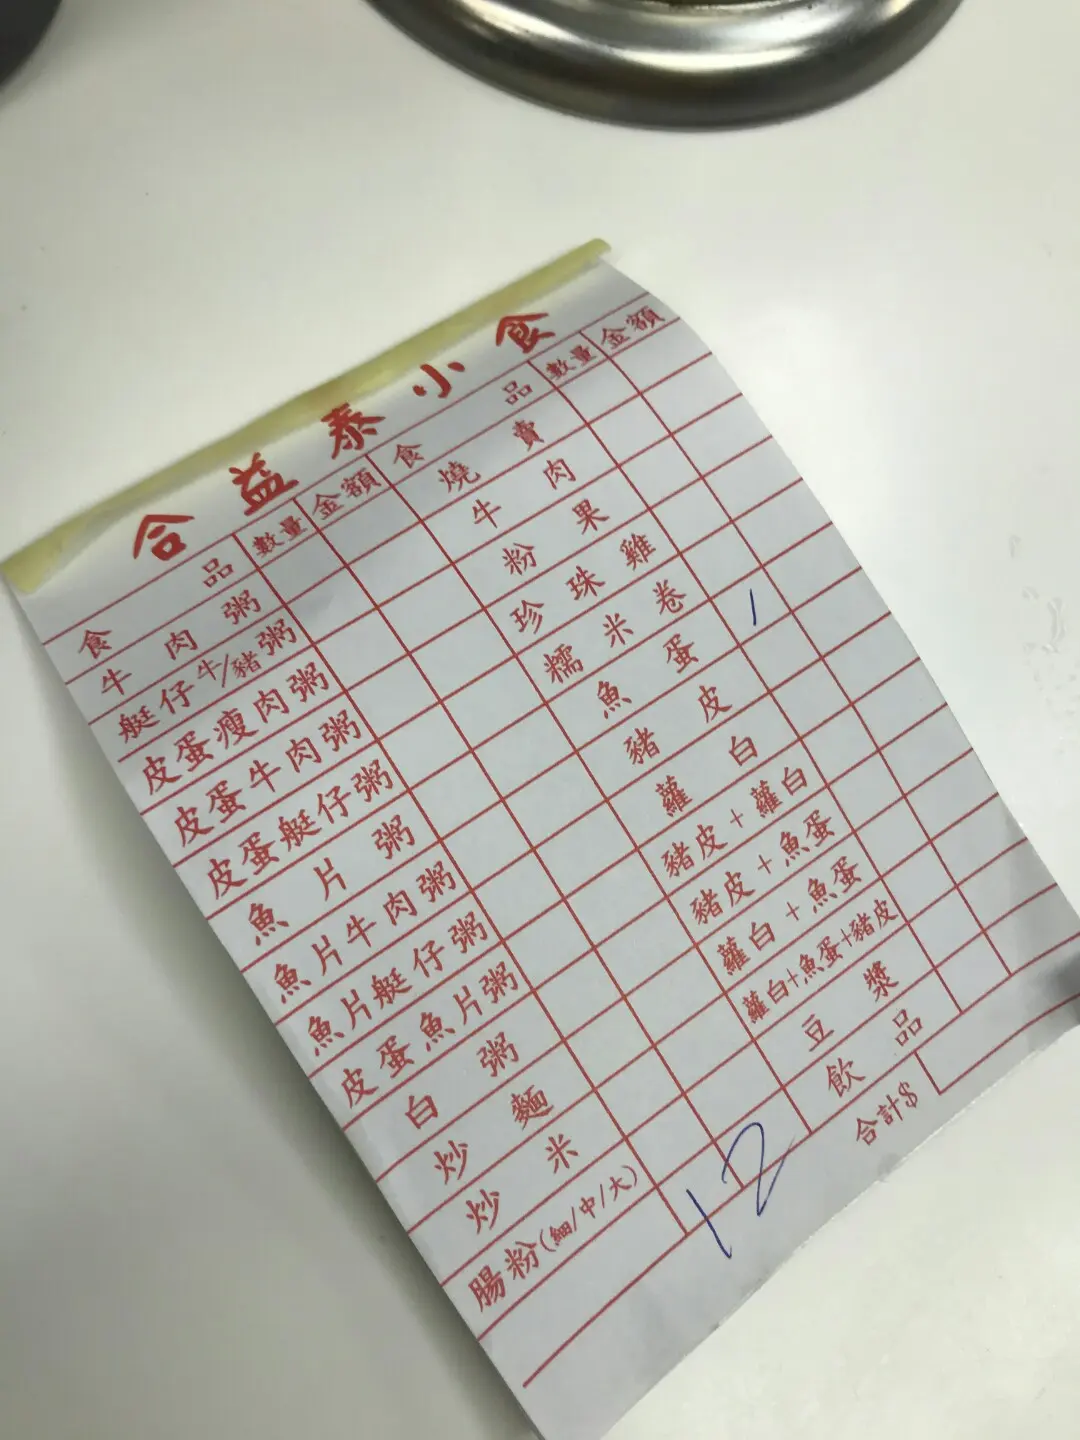 合益泰小食
食品 數量 金額
牛肉粥
艇仔牛/豬粥
皮蛋瘦肉粥
皮蛋牛肉粥
皮蛋艇仔粥
魚片粥
魚片牛肉粥
魚片艇仔粥
皮蛋魚片粥
白粥
炒麵
炒米
腸粉(細/中/大)
食品 數量 金額
燒賣
牛肉
粉果
珍珠雞
糯米卷
魚蛋 1
豬皮
蘿白
豬皮+蘿白
豬皮+魚蛋
蘿白+魚蛋
蘿白+魚蛋+豬皮
豆漿
飲品
12
合計$